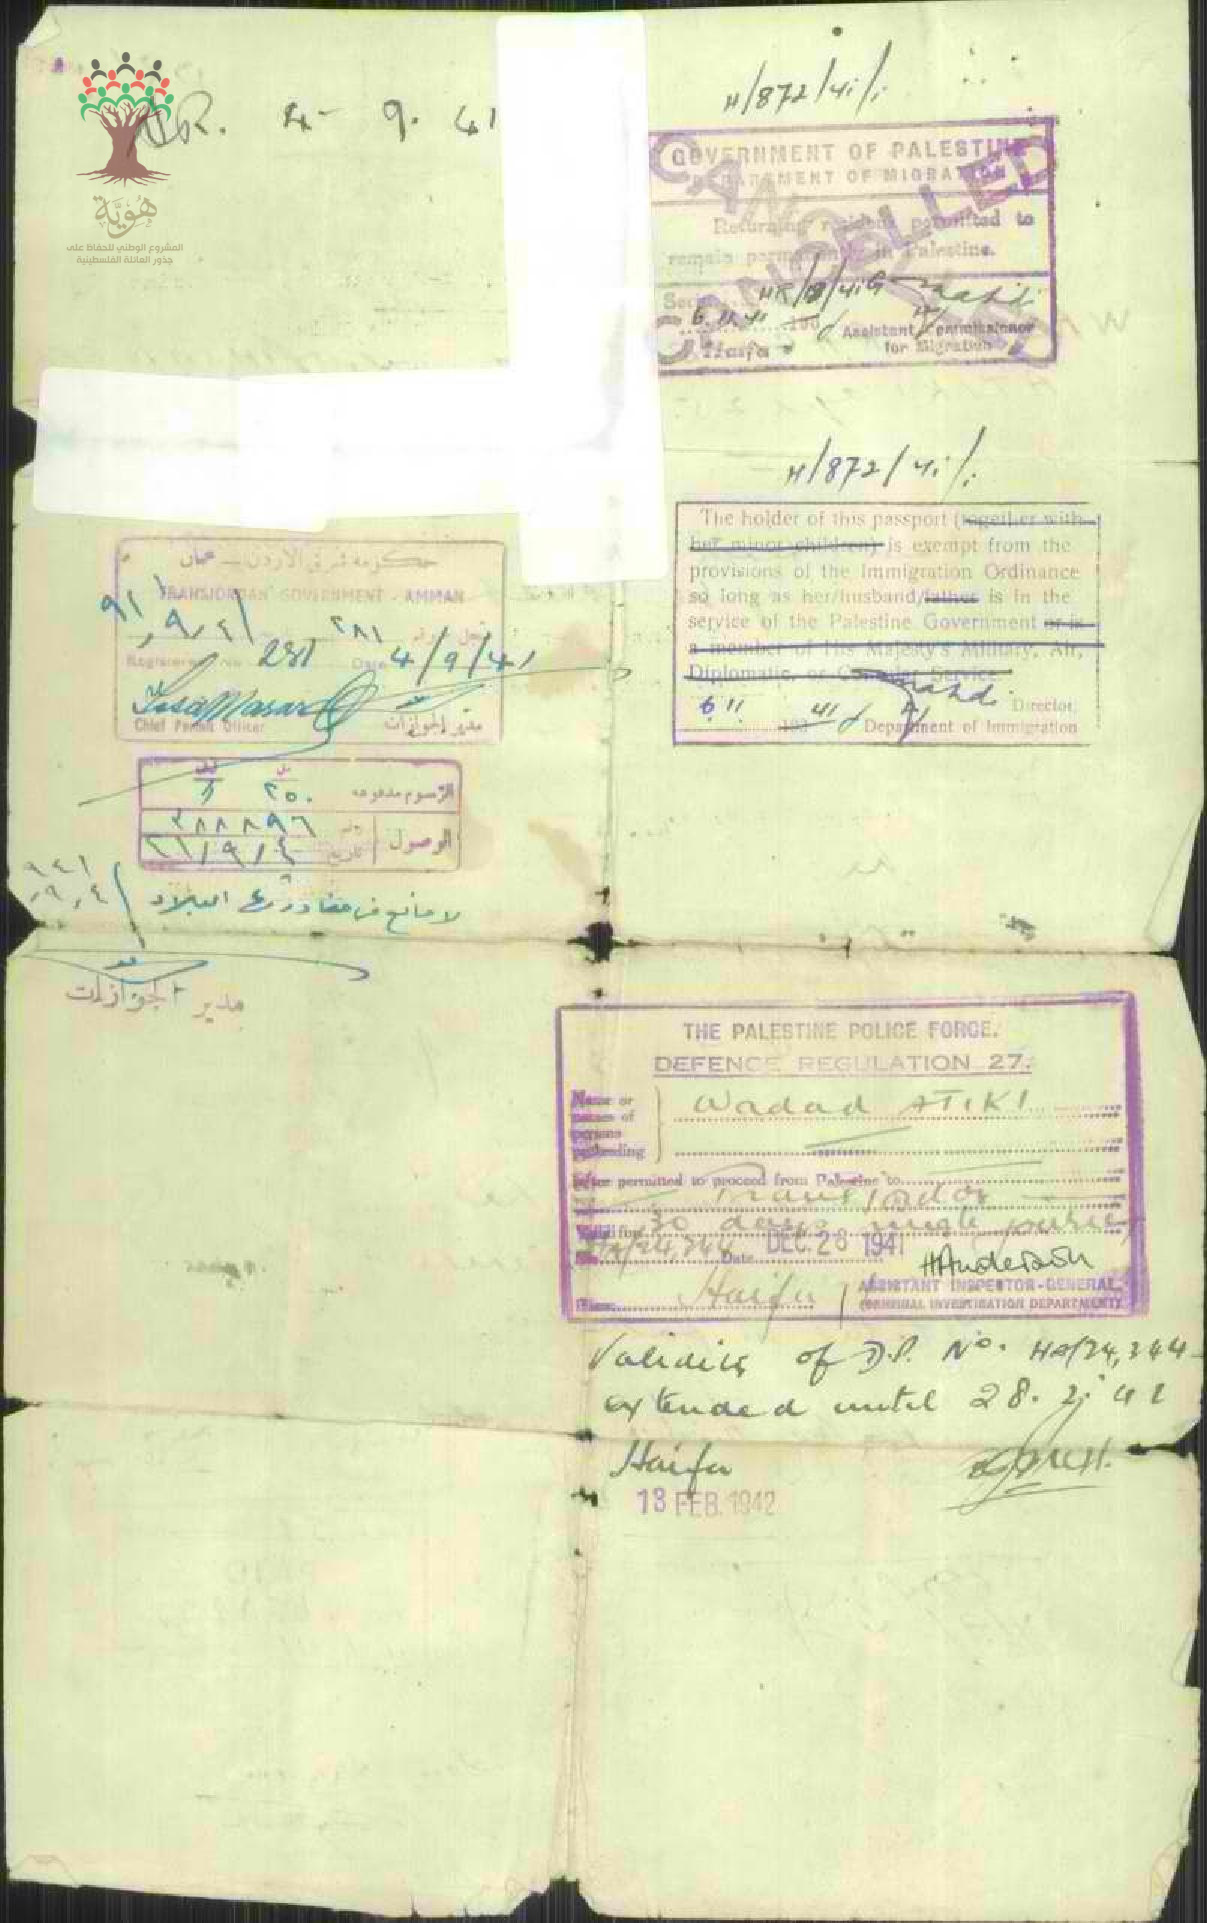 هُوِيَّة
المشروع الوطني للحفاظ على
جذور العائلة الفلسطينية
4- 9. 41
H/872/41/1
GOVERNMENT OF PALESTINE
DEPARTMENT OF MIGRATION
CANCELLED
Returning resident permitted to
remain permanently in Palestine.
6.11.41 193
Assistant Commissioner
Haifa
for Migration
حكومة شرق الأردن - عمان
TRANSJORDAN GOVERNMENT - AMMAN
٢٨١
Registered No 281 Date 4/9/41
Chief Permit Officer
مدير الجوازات
الرسوم مدفوعه
٢٥٠
الوصول
رقم ٣٨٨٨٩٦
تاريخ
لا مانع من مغادرة البلاد
٩٤١
٤ ، ٩ ،
مدير الجوازات
H/872/41/1
The holder of this passport (together with
her minor children) is exempt from the
provisions of the Immigration Ordinance
so long as her/husband/father is in the
service of the Palestine Government or is
a member of His Majesty's Military, Air,
Diplomatic, or Consular Service
6 11 41 193
Director,
Department of Immigration
THE PALESTINE POLICE FORCE.
DEFENCE REGULATION 27.
Name or
names of
persons
proceeding
Wadad ATIKI
permitted to proceed from Palestine to
Trans Jordan
Valid for 30 days single journey
24,344 Date DEC. 28 1941
HAnderson
ASSISTANT INSPECTOR-GENERAL,
(CRIMINAL INVESTIGATION DEPARTMENT)
Place Haifa
Validity of D.P. No. Ha/24,344
extended until 28. 2. 42
Haifa
13 FEB. 1942